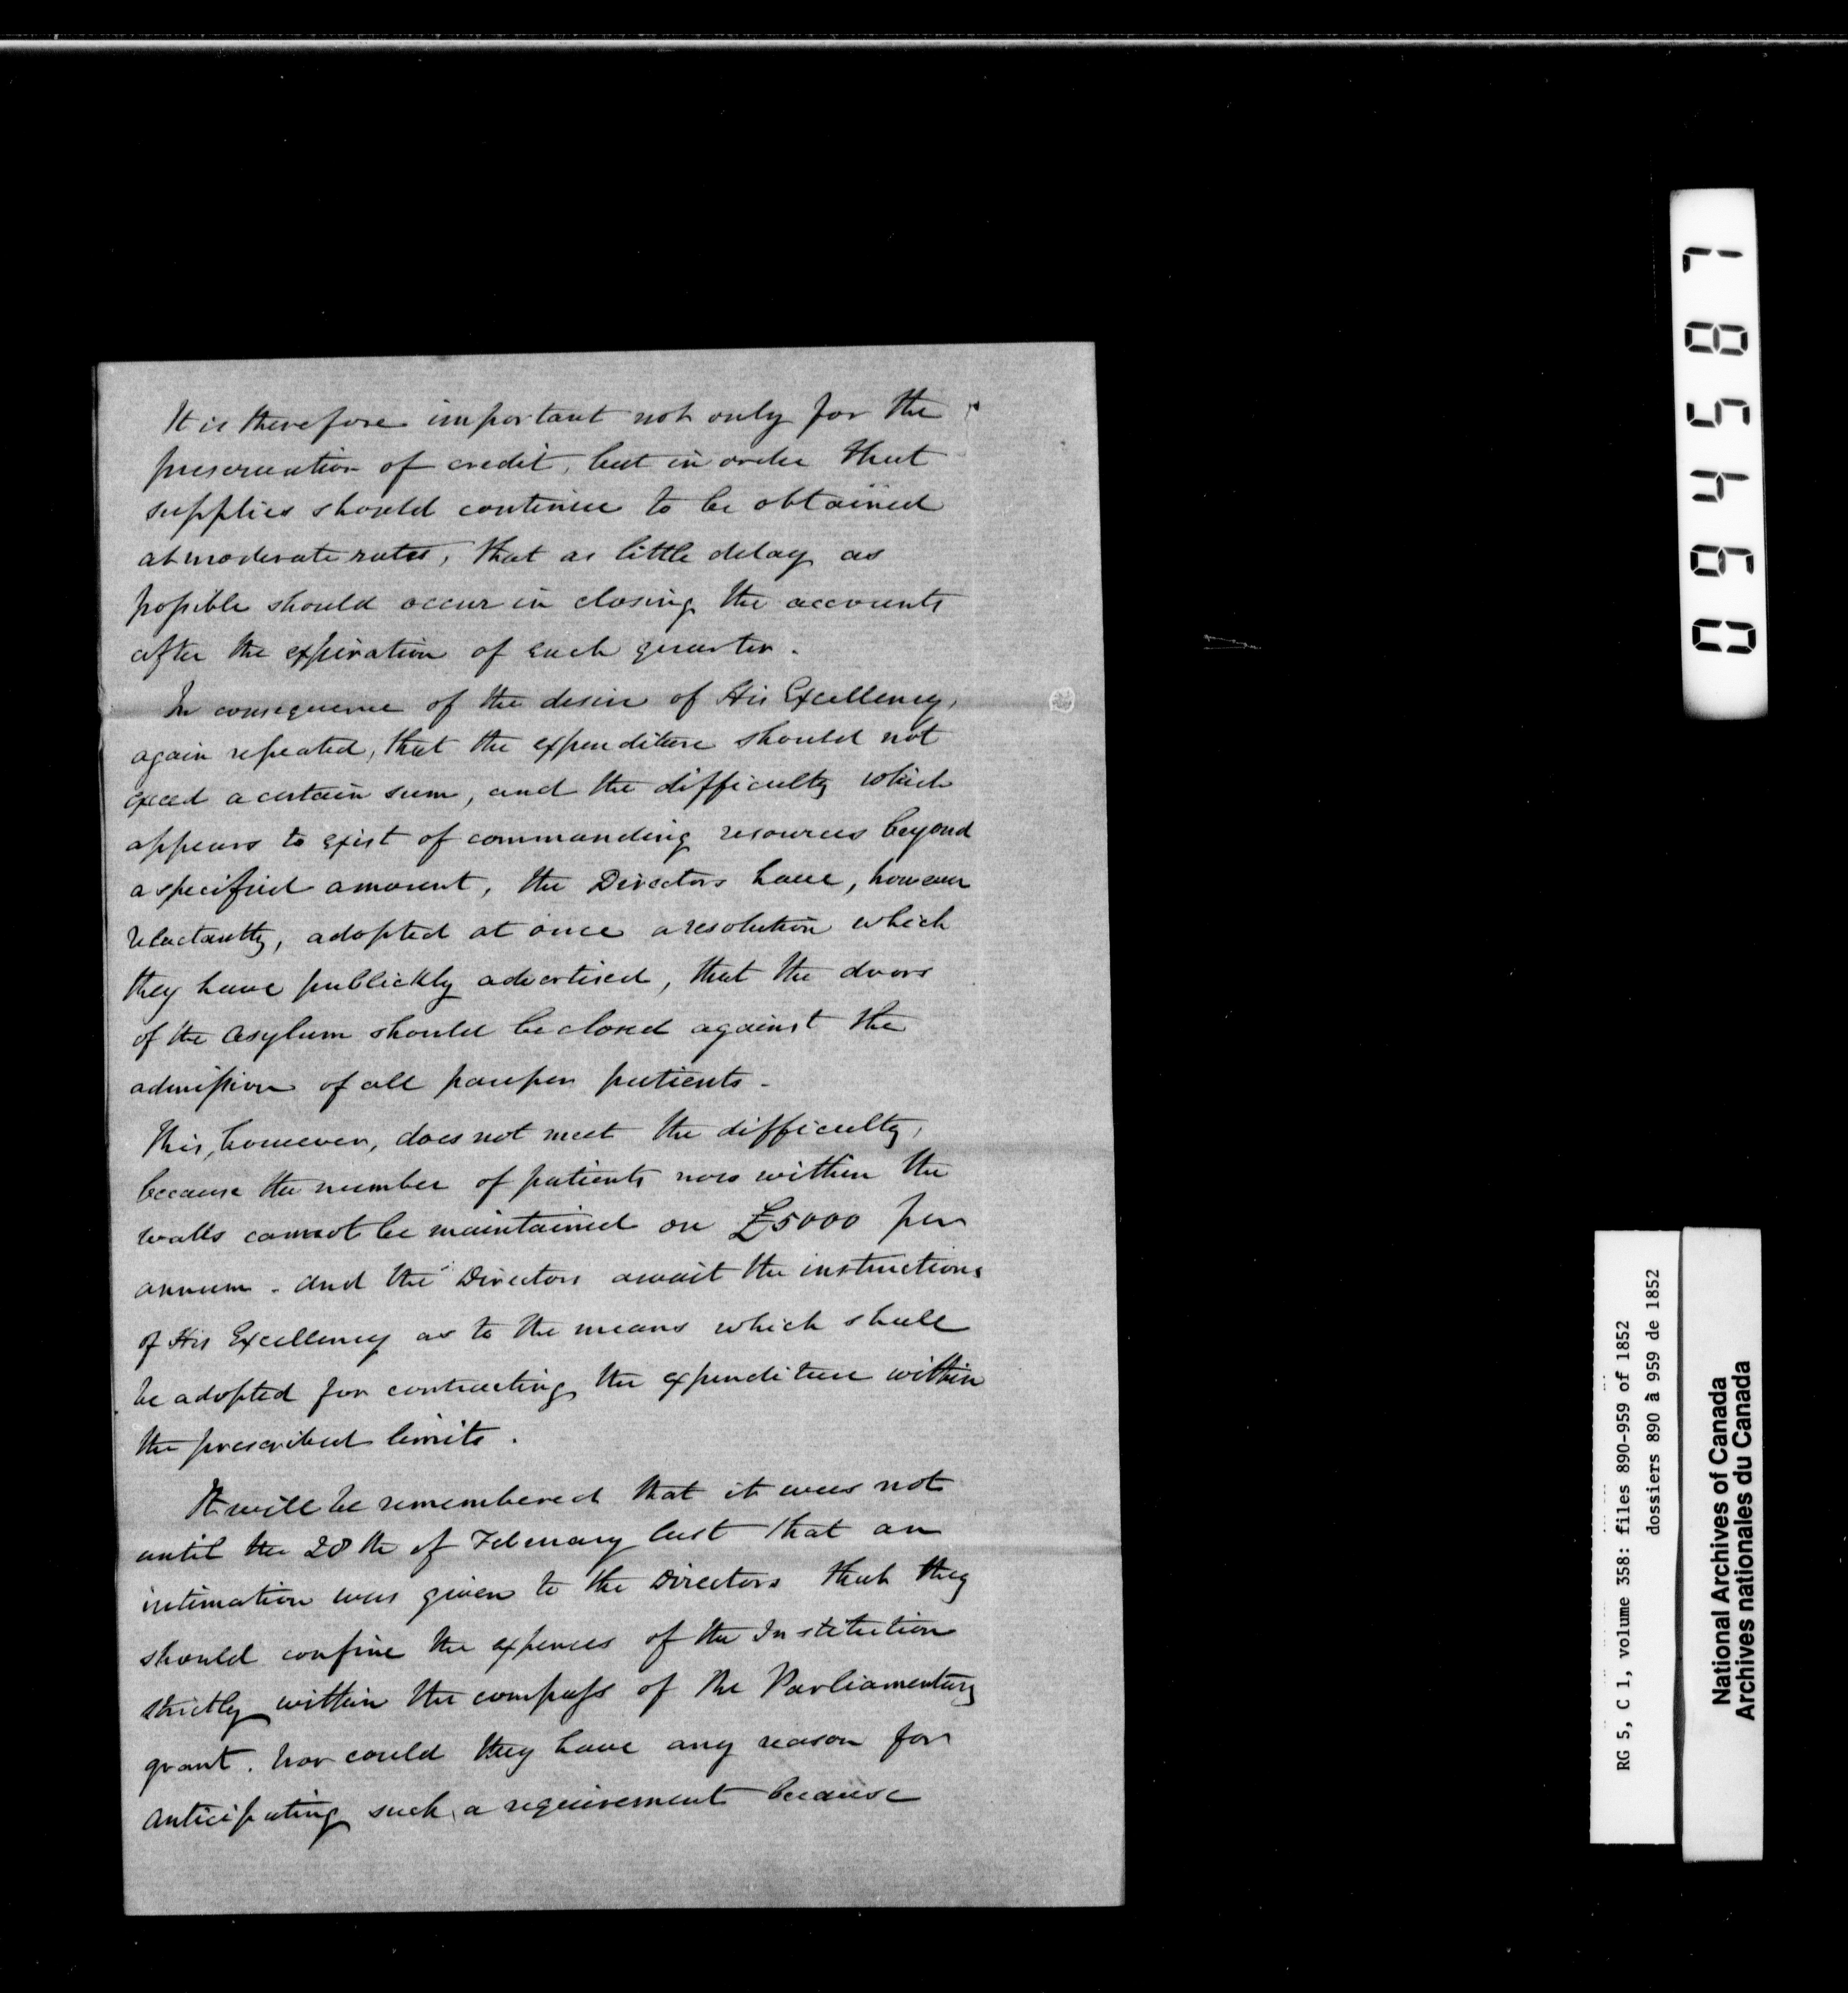 It is therefore important not only for the
preservation of credit, but in order that
supplies should continue to be obtained
at moderate rates, that as little delay as
possible should occur in closing the accounts
after the expiration of each quarter.
In consequence of the desire of His Excellency,
again repeated, that the expenditure should not
exceed a certain sum, and the difficulty which
appears to exist of commanding resources beyond
a specified amount, the Directors have, however
reluctantly, adopted at once a resolution which
they have publickly advertised, that the doors
of the Asylum should be closed against the
admission of all pauper patients.
This, however, does not meet the difficulty,
because the number of patients now within the
walls cannot be maintained on £5000 per
annum. And the Directors await the instructions
of His Excellency as to the means which shall
be adopted for contracting the expenditure within
the prescribed limits.
It will be remembered that it was not
until the 28th of February last that an
intimation was given to the Directors that they
should confine the expences of the Institution
strictly within the compass of the Parliamentary
grant. Nor could they have any reason for
anticipating such a requirement because
094587
RG 5, C 1, volume 358: files 890-959 of 1852
dossiers 890 à 959 de 1852
National Archives of Canada
Archives nationales du Canada